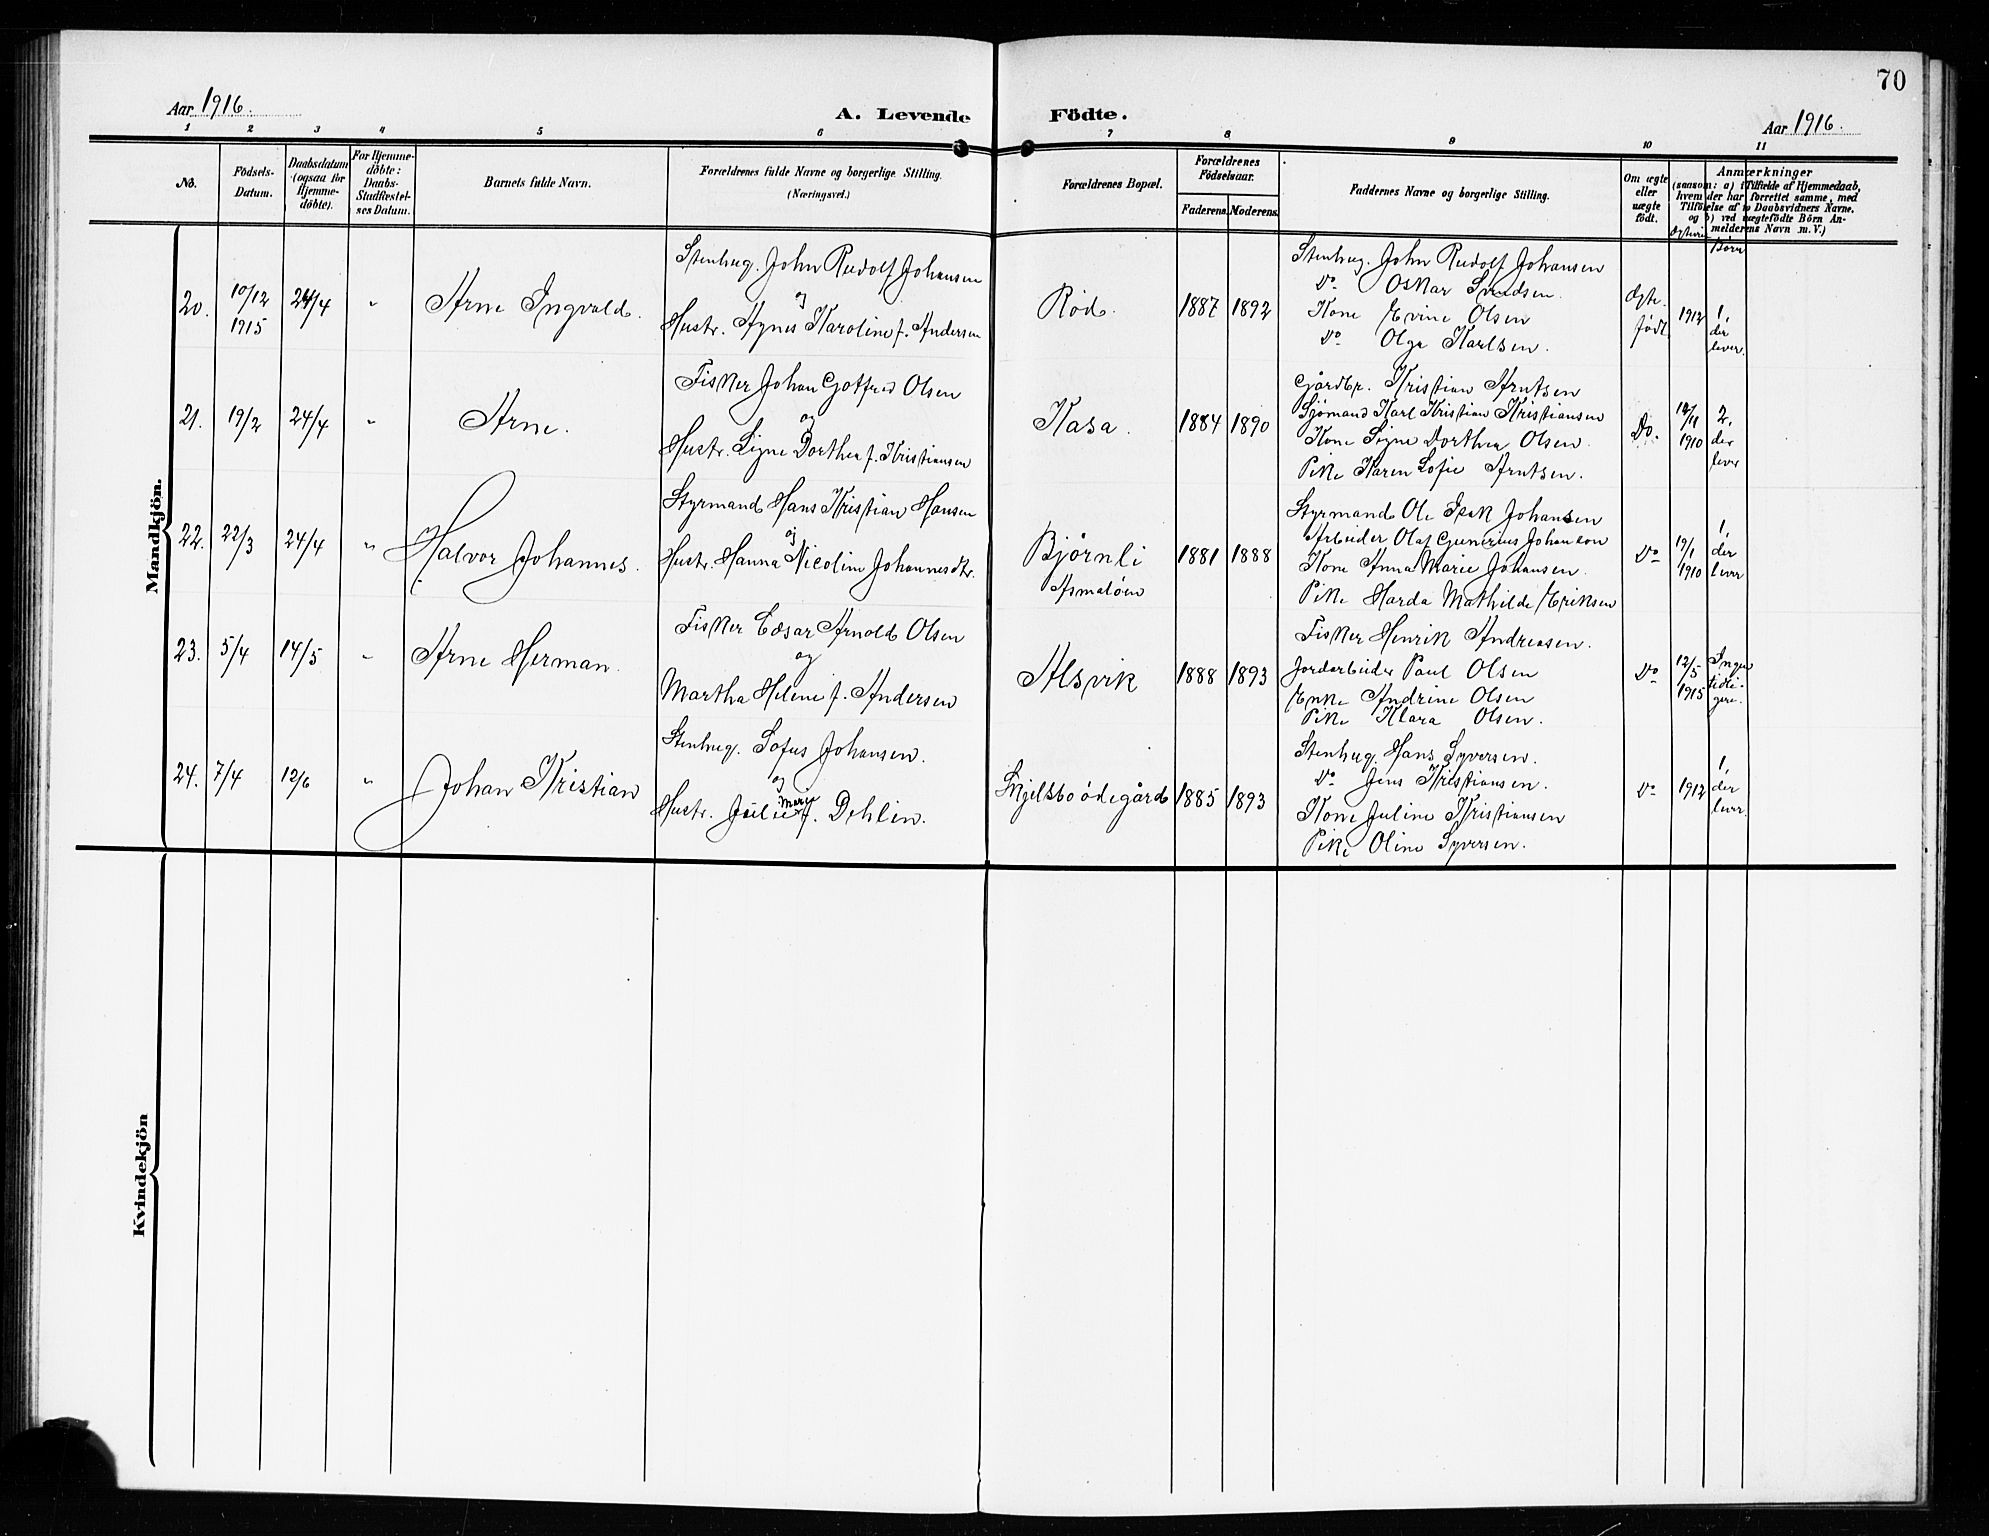 70
Aar 1916.
A. Levende Födte.
Aar 1916.
1 2 3 4 5 6 7 8 9 10 11
No.
Födsels-
Datum.
Daabsdatum
(ogsaa for
Hjemme-
döbte).
For Hjemme-
döbte:
Daabs-
Stadfæstel-
ses Datum.
Barnets fulde Navn.
Forældrenes fulde Navne og borgerlige Stilling.
(Næringsvei.)
Forældrenes Bopæl.
Forældrenes
Födselsaar.
Faderens. Moderens.
Faddernes Navne og borgerlige Stilling.
Om ægte
eller
uægte
födt.
Anmærkninger
(saasom: a) i Tilfælde af Hjemmedaab,
hvem der har forrettet samme, med
Tilföielse af to Daabsvidners Navne,
og b) ved uægtefödte Börn An-
melderens Navn m. V.)
Børn
Mandkjön.
20.
10/12
1915
24/4
"
Arne Ingvald.
Stenhug. John Rudolf Johansen
og
Hustr. Agnes Karoline f. Andersen
Rød.
1887
1892
Stenhug. John Rudolf Johansen
Do Oskar Svendsen.
Kone Evine Olsen
Do Olga Karlsen.
Ægte-
født
1912
1,
der
lever.
21.
19/2
24/4
"
Arne.
Fisker Johan Gotfred Olsen
og
Hustr. Signe Dorthea f. Kristiansen
Kasa.
1884
1890
Gårdbr. Kristian Arntsen
Sjømand Karl Kristian Kristiansen
Kone Signe Dorthea Olsen.
Pike Karen Sofie Arntsen.
Do.
1910
2,
der
lever
22.
22/3
24/4
"
Halvor Johannes.
Styrmand Hans Kristian Hansen
og
Hustr. Hanna Nicoline Johannesdtr.
Bjørnli
Asmaløen
1881
1888
Styrmand Ole Isak Johansen
Arbeider Olaf Gunerius Johansen
Kone Anna Marie Johansen.
Pike Harda Mathilde Eriksen
Do
19/1
1910
1,
der
lever
23.
5/4
14/5
"
Arne Herman.
Fisker Cæsar Arnold Olsen
og
Martha Helene f. Andersen
Alsvik
1888
1893
Fisker Henrik Andreasen.
Jordarbeider Paul Olsen
Enke Andrine Olsen
Pike Klara Olsen.
Do
12/5
1915
Ingen
tidli-
gere.
24.
7/4
12/6
"
Johan Kristian
Stenhug. Sofus Johansen.
og
Hustr. Julie Marie f. Dehlin.
Skjelsbo ødegård
1885
1893
Stenhug. Hans Syversen.
Do Jens Kristiansen.
Kone Juline Kristiansen
Pike Oline Syversen.
Do
1912
1,
der
lever.
Kvindekjön